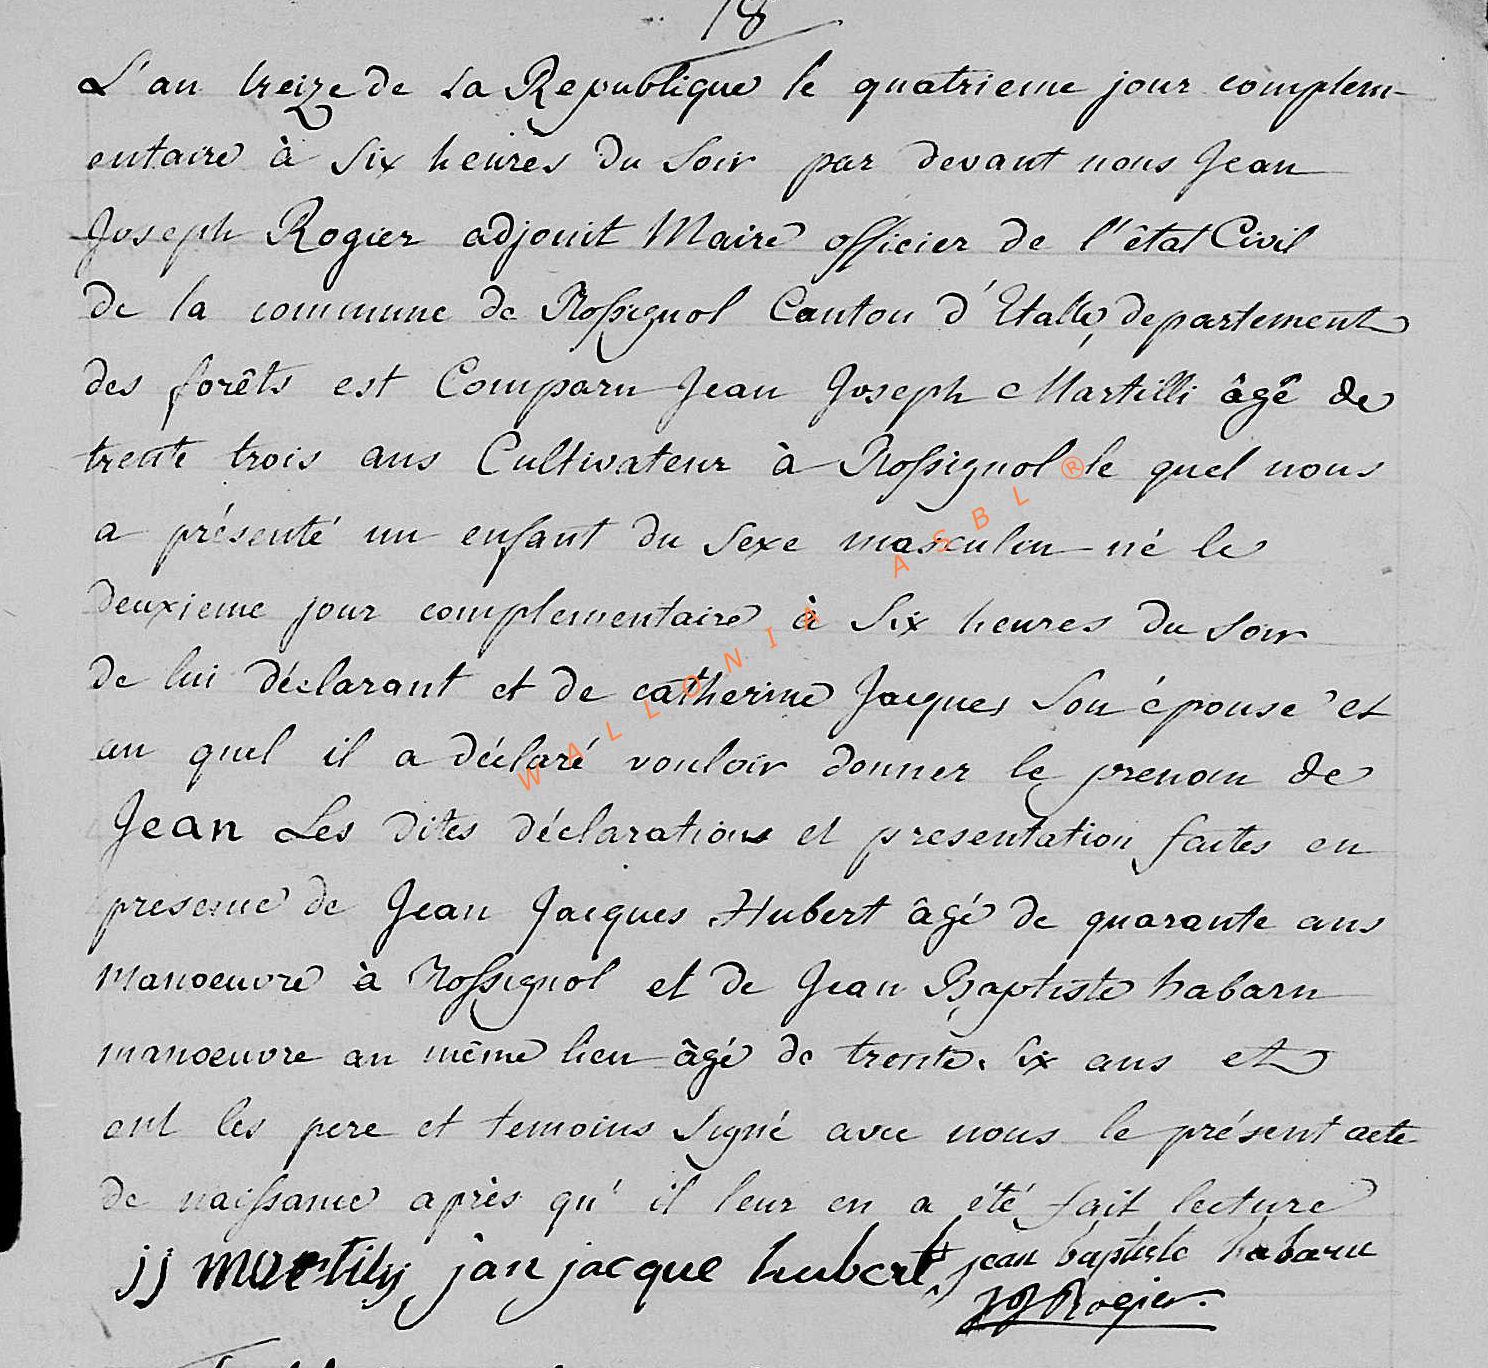 18
L'an treize de la Republique le quatrieme jour complem-
entaire à six heures du soir par devant nous Jean
Joseph Rogier adjouit Maire officier de l'êtat Civil
de la commune de Rossignol Canton d'Etalle, departement
des forêts est Comparu Jean Joseph Martilli âgé de
trente trois ans Cultivateur à Rossignol le quel nous
a présenté un enfant du sexe masculin né le
deuxieme jour complementaire à six heures du soir
de lui déclarant et de catherine Jacques son épouse et
au quel il a déclaré vouloir donner le prenom de
Jean Les dites déclarations et presentation faites en
presence de Jean Jacques Hubert âgé de quarante ans
Manoeuvre à Rossignol et de Jean Baptiste habaru
manoeuvre au même lieu âgé de trente six ans et
ont les pere et temoins signé avec nous le présent acte
de naissance après qu'il leur en a été fait lecture
jj martilij jan jacque hubert jean baptiste habaru
JJ Rogier.
WALLONIA ASBL ®